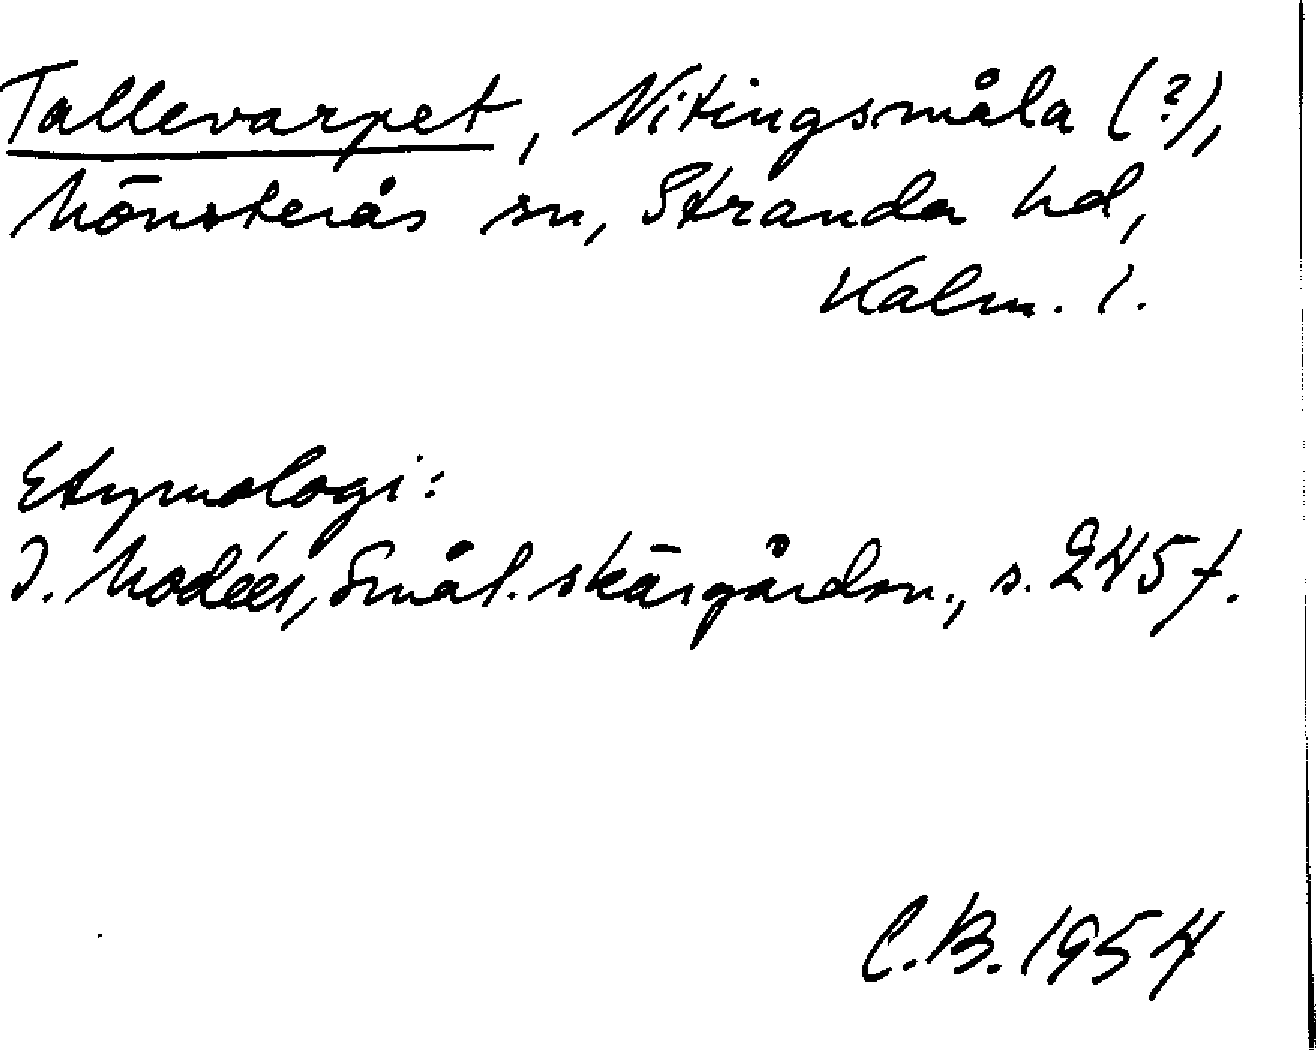 Tallevarpet, Nitingsmåla (?),
Mönsterås sn, Stranda hd,
Kalm. l.
Etymologi:
I. Modéer, Smål. skärgårdsn., s. 245 f.
C.B. 1954